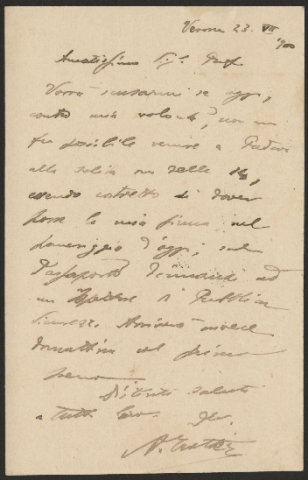 Verona 23. VII
1900
Amatissimo Sig. Prof.
Vorrà scusarmi se oggi,
contro mia volontà, non mi
fu possibile venire a Padova
alla solita ora delle
essendo costretto di dover
porre la mia firma nel
pomeriggio d'oggi, sul
Passaporto dinnanzi ad
un di Pubblica
Sicurezza. Arriverò invece
domattina col primo
treno
Distinti saluti
a tutti Loro. Dev.
A.